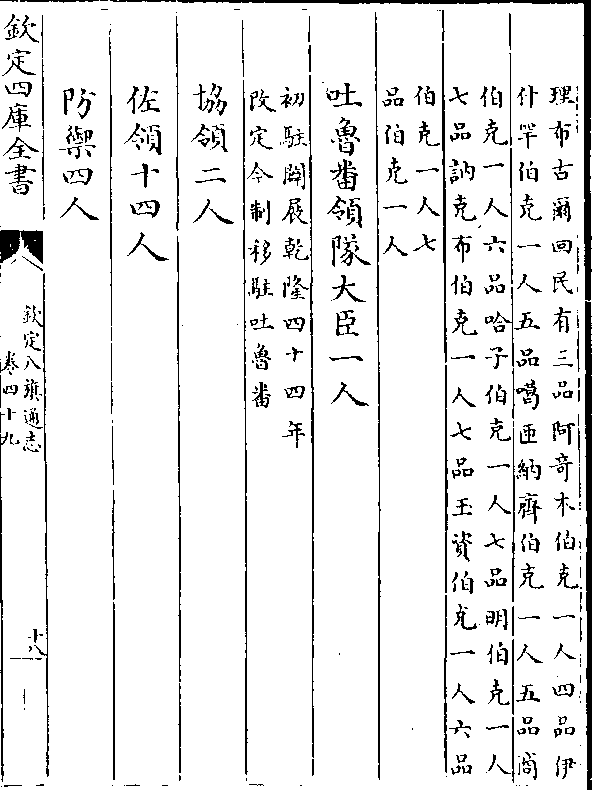 理布古爾回民有三品阿竒木伯克一人四品伊
什罕伯克一人五品噶匝納齊伯克一人五品商
伯克一人六品哈子伯克一人七品明伯克一人
七品訥克布伯克一人七品玉資伯克一人六品
伯克一人七
品伯克一人
吐魯番領隊大臣一人
初駐闢展乾隆四十四年
改定今制移駐吐魯番
協領二人
佐領十四人
防禦四人
欽定四庫全書
欽定八旗通志
卷四十九
十八